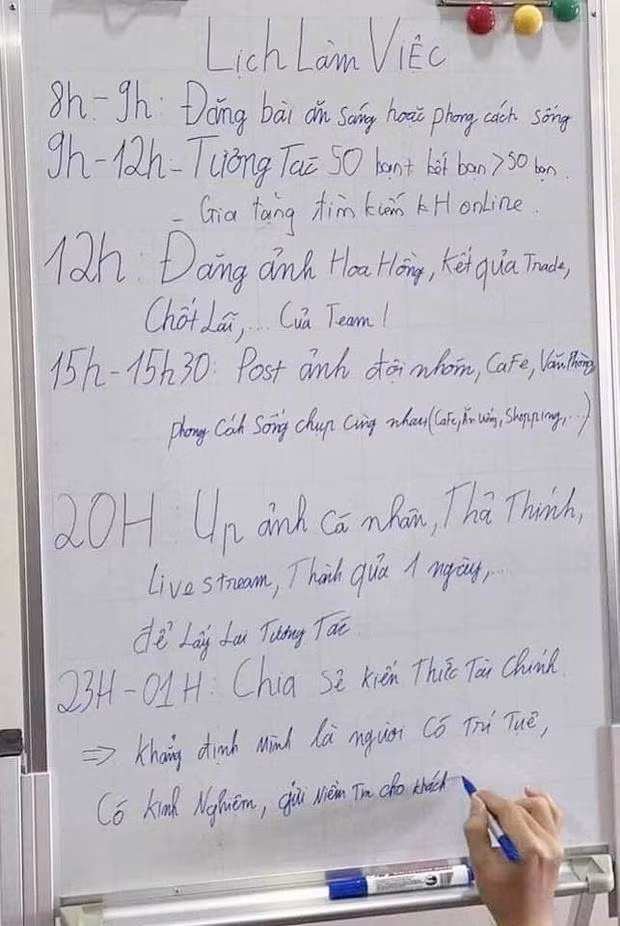 Lịch Làm Việc
8h - 9h: Đăng bài ăn sáng hoặc phong cách sống
9h - 12h - Tương Tác 50 bạn + kết bạn > 50 bạn.
- Gia tăng tìm kiếm KH online.
12h: Đăng ảnh Hoa Hồng, Kết quả Trade,
Chốt Lãi,... Của Team!
15h - 15h30: Post ảnh đội nhóm, Cafe, Văn Phòng
phong Cách Sống chụp Cùng nhau (Cafe, Ăn uống, Shopping,...)
20H: Up ảnh Cá nhân, Thả Thính,
Livestream, Thành quả 1 ngày,...
để Lấy Lại Tương Tác
23H - 01H: Chia Sẻ Kiến Thức Tài Chính.
=> Khẳng định Mình là người Có Trí Tuệ,
Có Kinh Nghiệm, gửi Niềm Tin cho khách